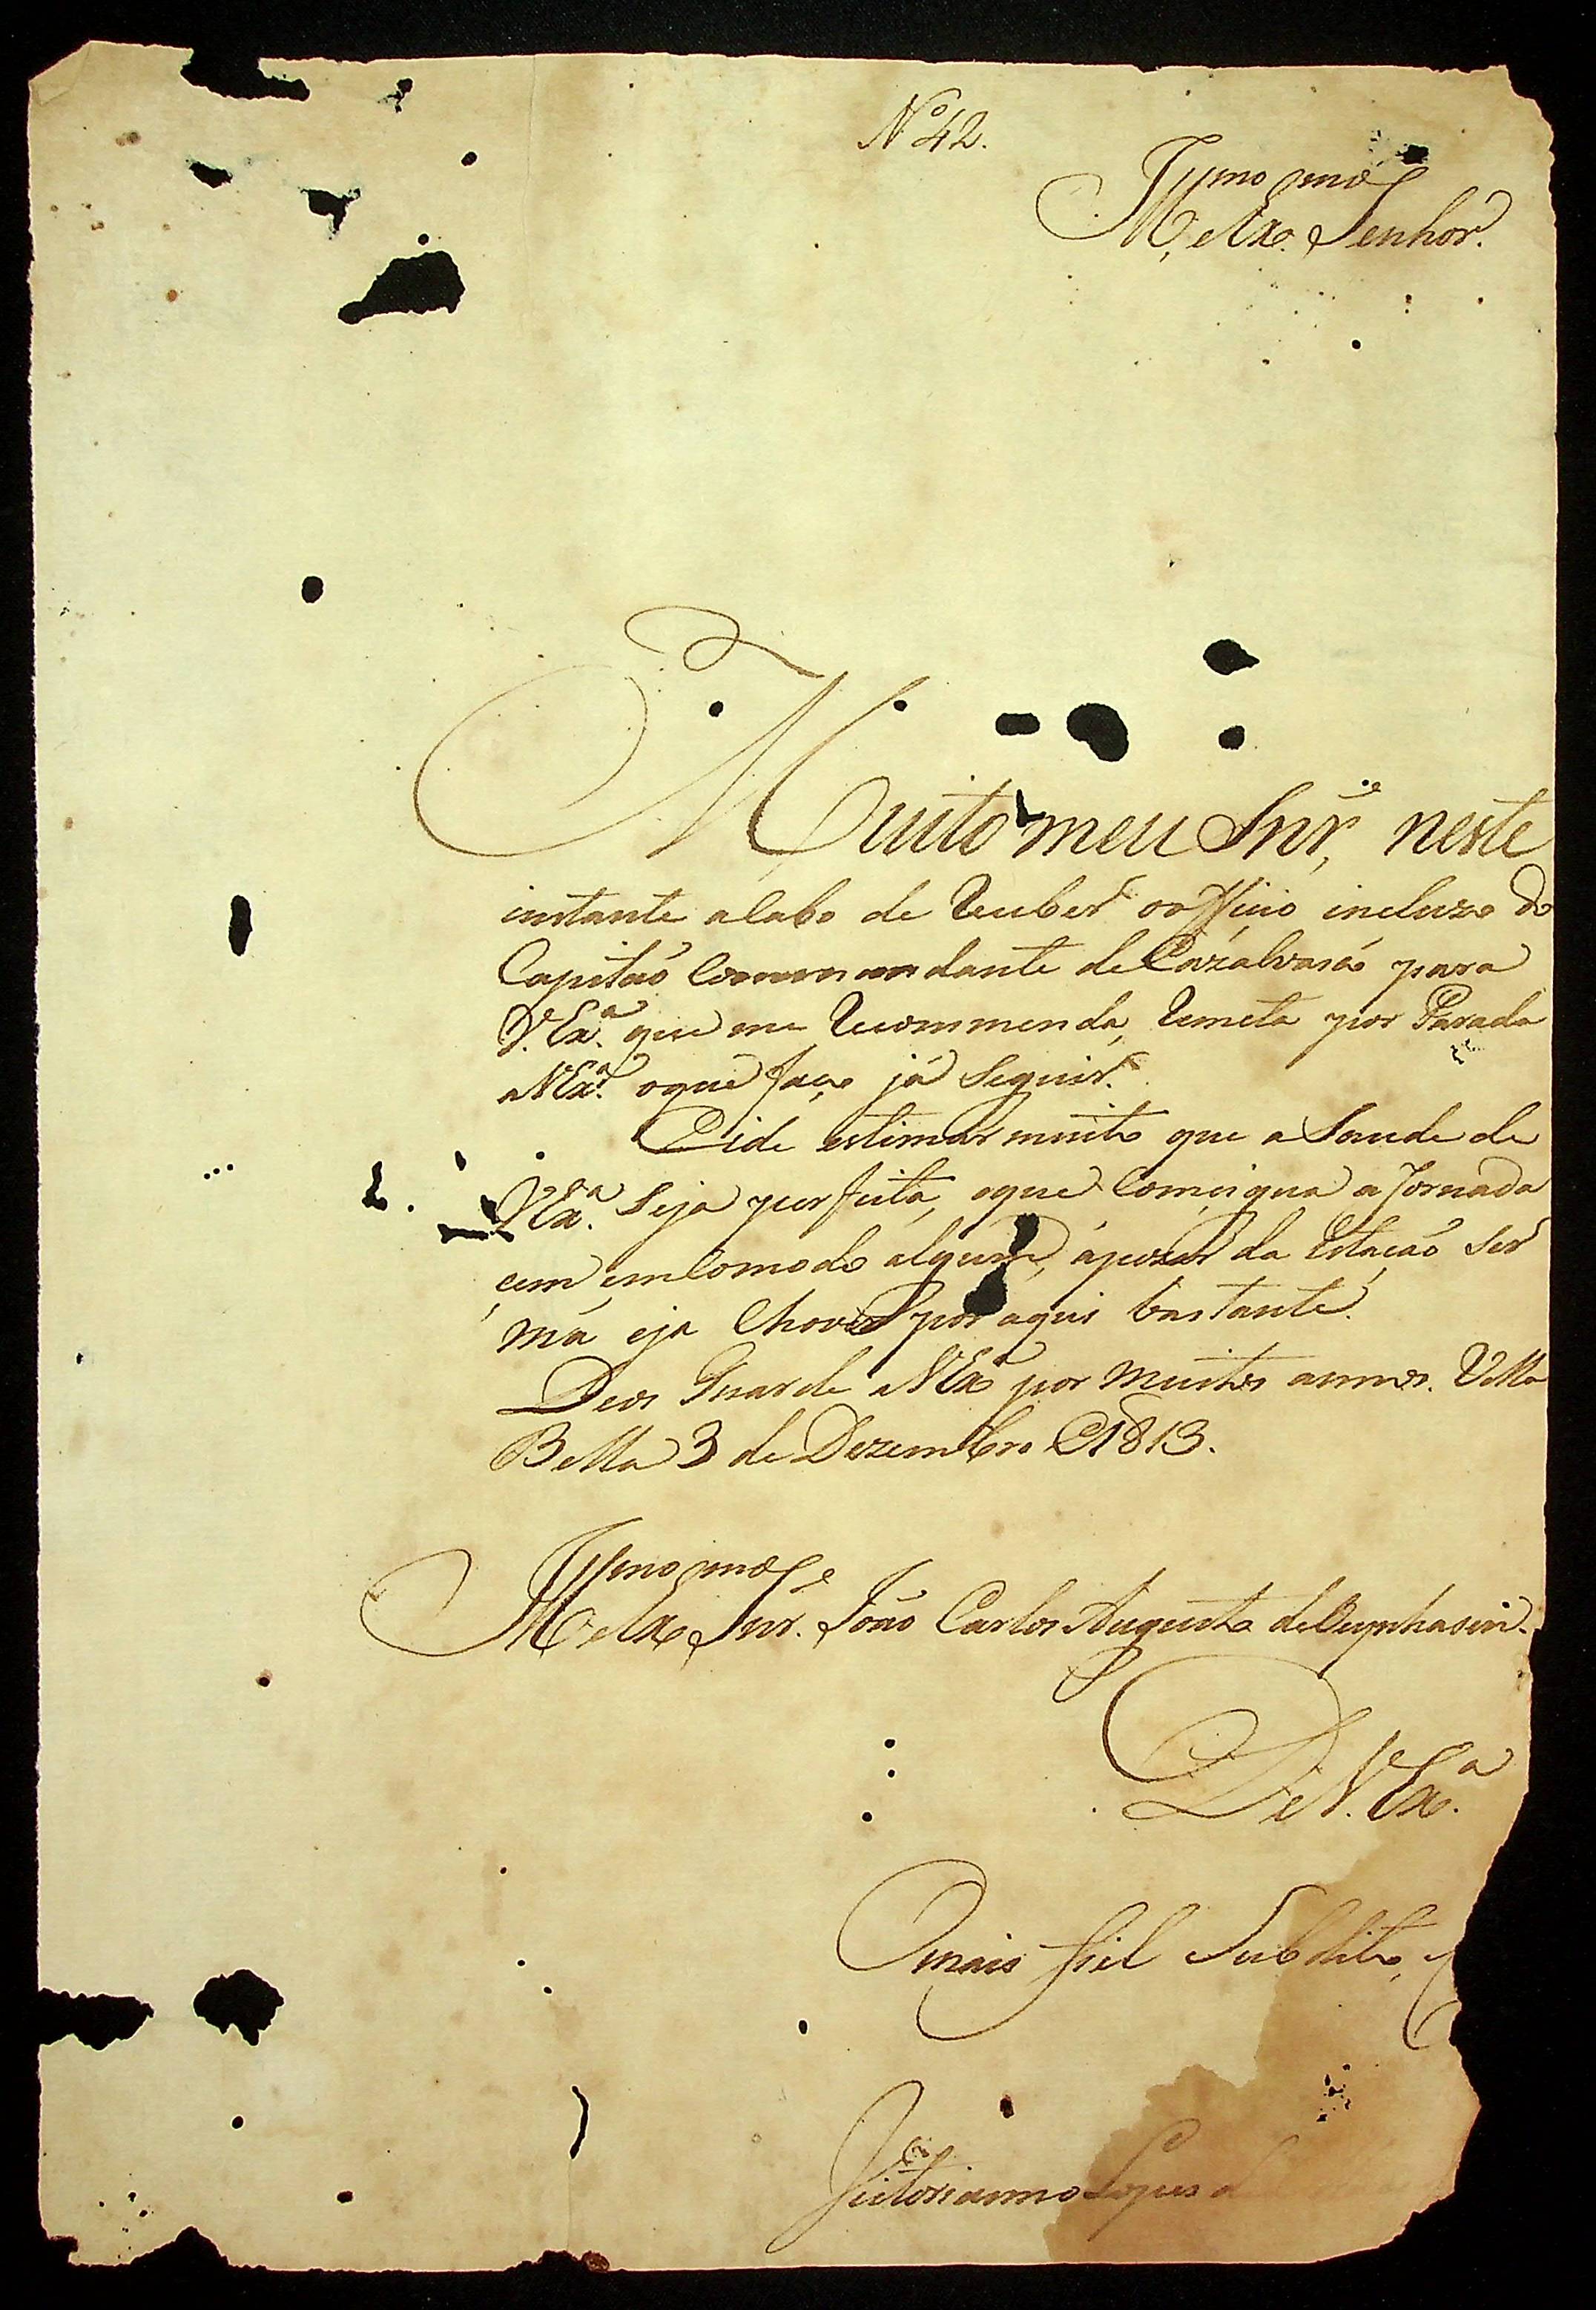 Nº 42.
Ill.mo e Ex.mo Senhor.
Muito meu Snr., neste
instante acabo de receber o officio incluzo do
Capitaõ Commandante de Cazalvasco para
V. Ex.a que me recommenda, remeta por Parada
a V Ex.a o que faço já seguir.
estimar muito que a Saude de
V Ex.a Seja perfeita, e que Consigua a Jornada
cem emComodo algum, apezar da Estaçaõ Ser
má e ja Chover por aqui bastante.
Deos Guarde a V Ex.a por muitos annos. Villa
Bella 3 de Dezembro 1813.
Ill.mo e Ex.mo Snr. João Carlos Augusto de Oeynhausen.
De V. Ex.a
O mais fiel Subdito,
Victorianno Lopes d